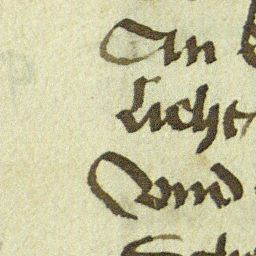 An
Licht
Vnd